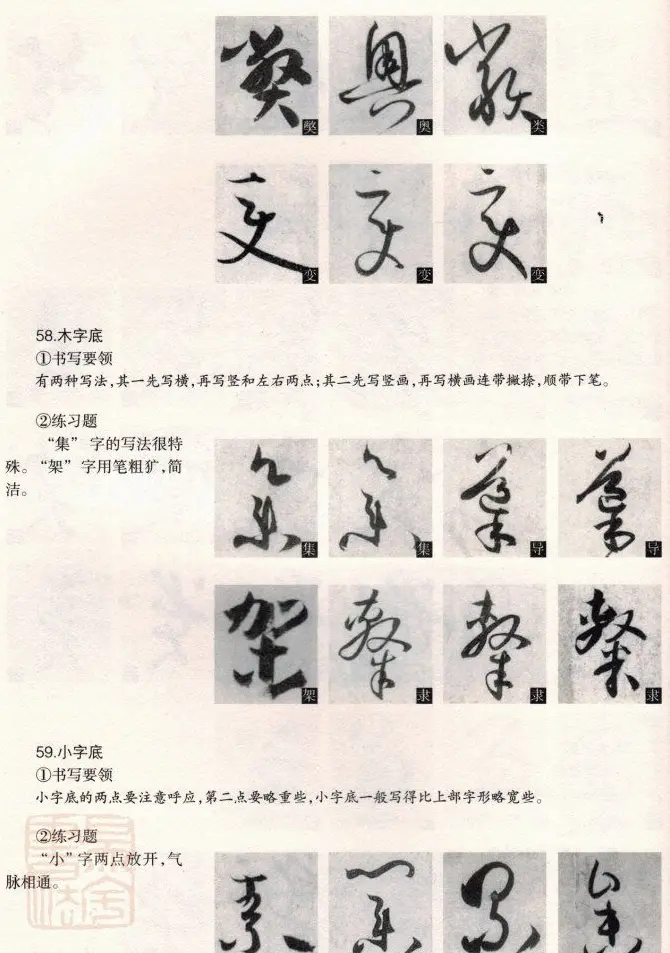 樊 奥 类
变 变 变
58.木字底
①书写要领
有两种写法,其一先写横,再写竖和左右两点;其二先写竖画,再写横画连带撇捺,顺带下笔。
②练习题
“集” 字的写法很特
殊。“架”字用笔粗犷,简
洁。
集 集 导 导
架 隶 隶 隶
59.小字底
①书写要领
小字底的两点要注意呼应,第二点要略重些,小字底一般写得比上部字形略宽些。
②练习题
“小”字两点放开,气
脉相通。